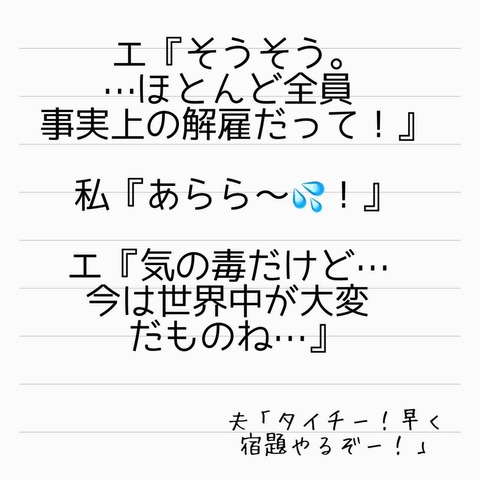 エ『そうそう。
…ほとんど全員
事実上の解雇だって！』
私『あらら〜💦！』
エ『気の毒だけど…
今は世界中が大変
だものね…』
夫「タイチー！早く
宿題やるぞー！」